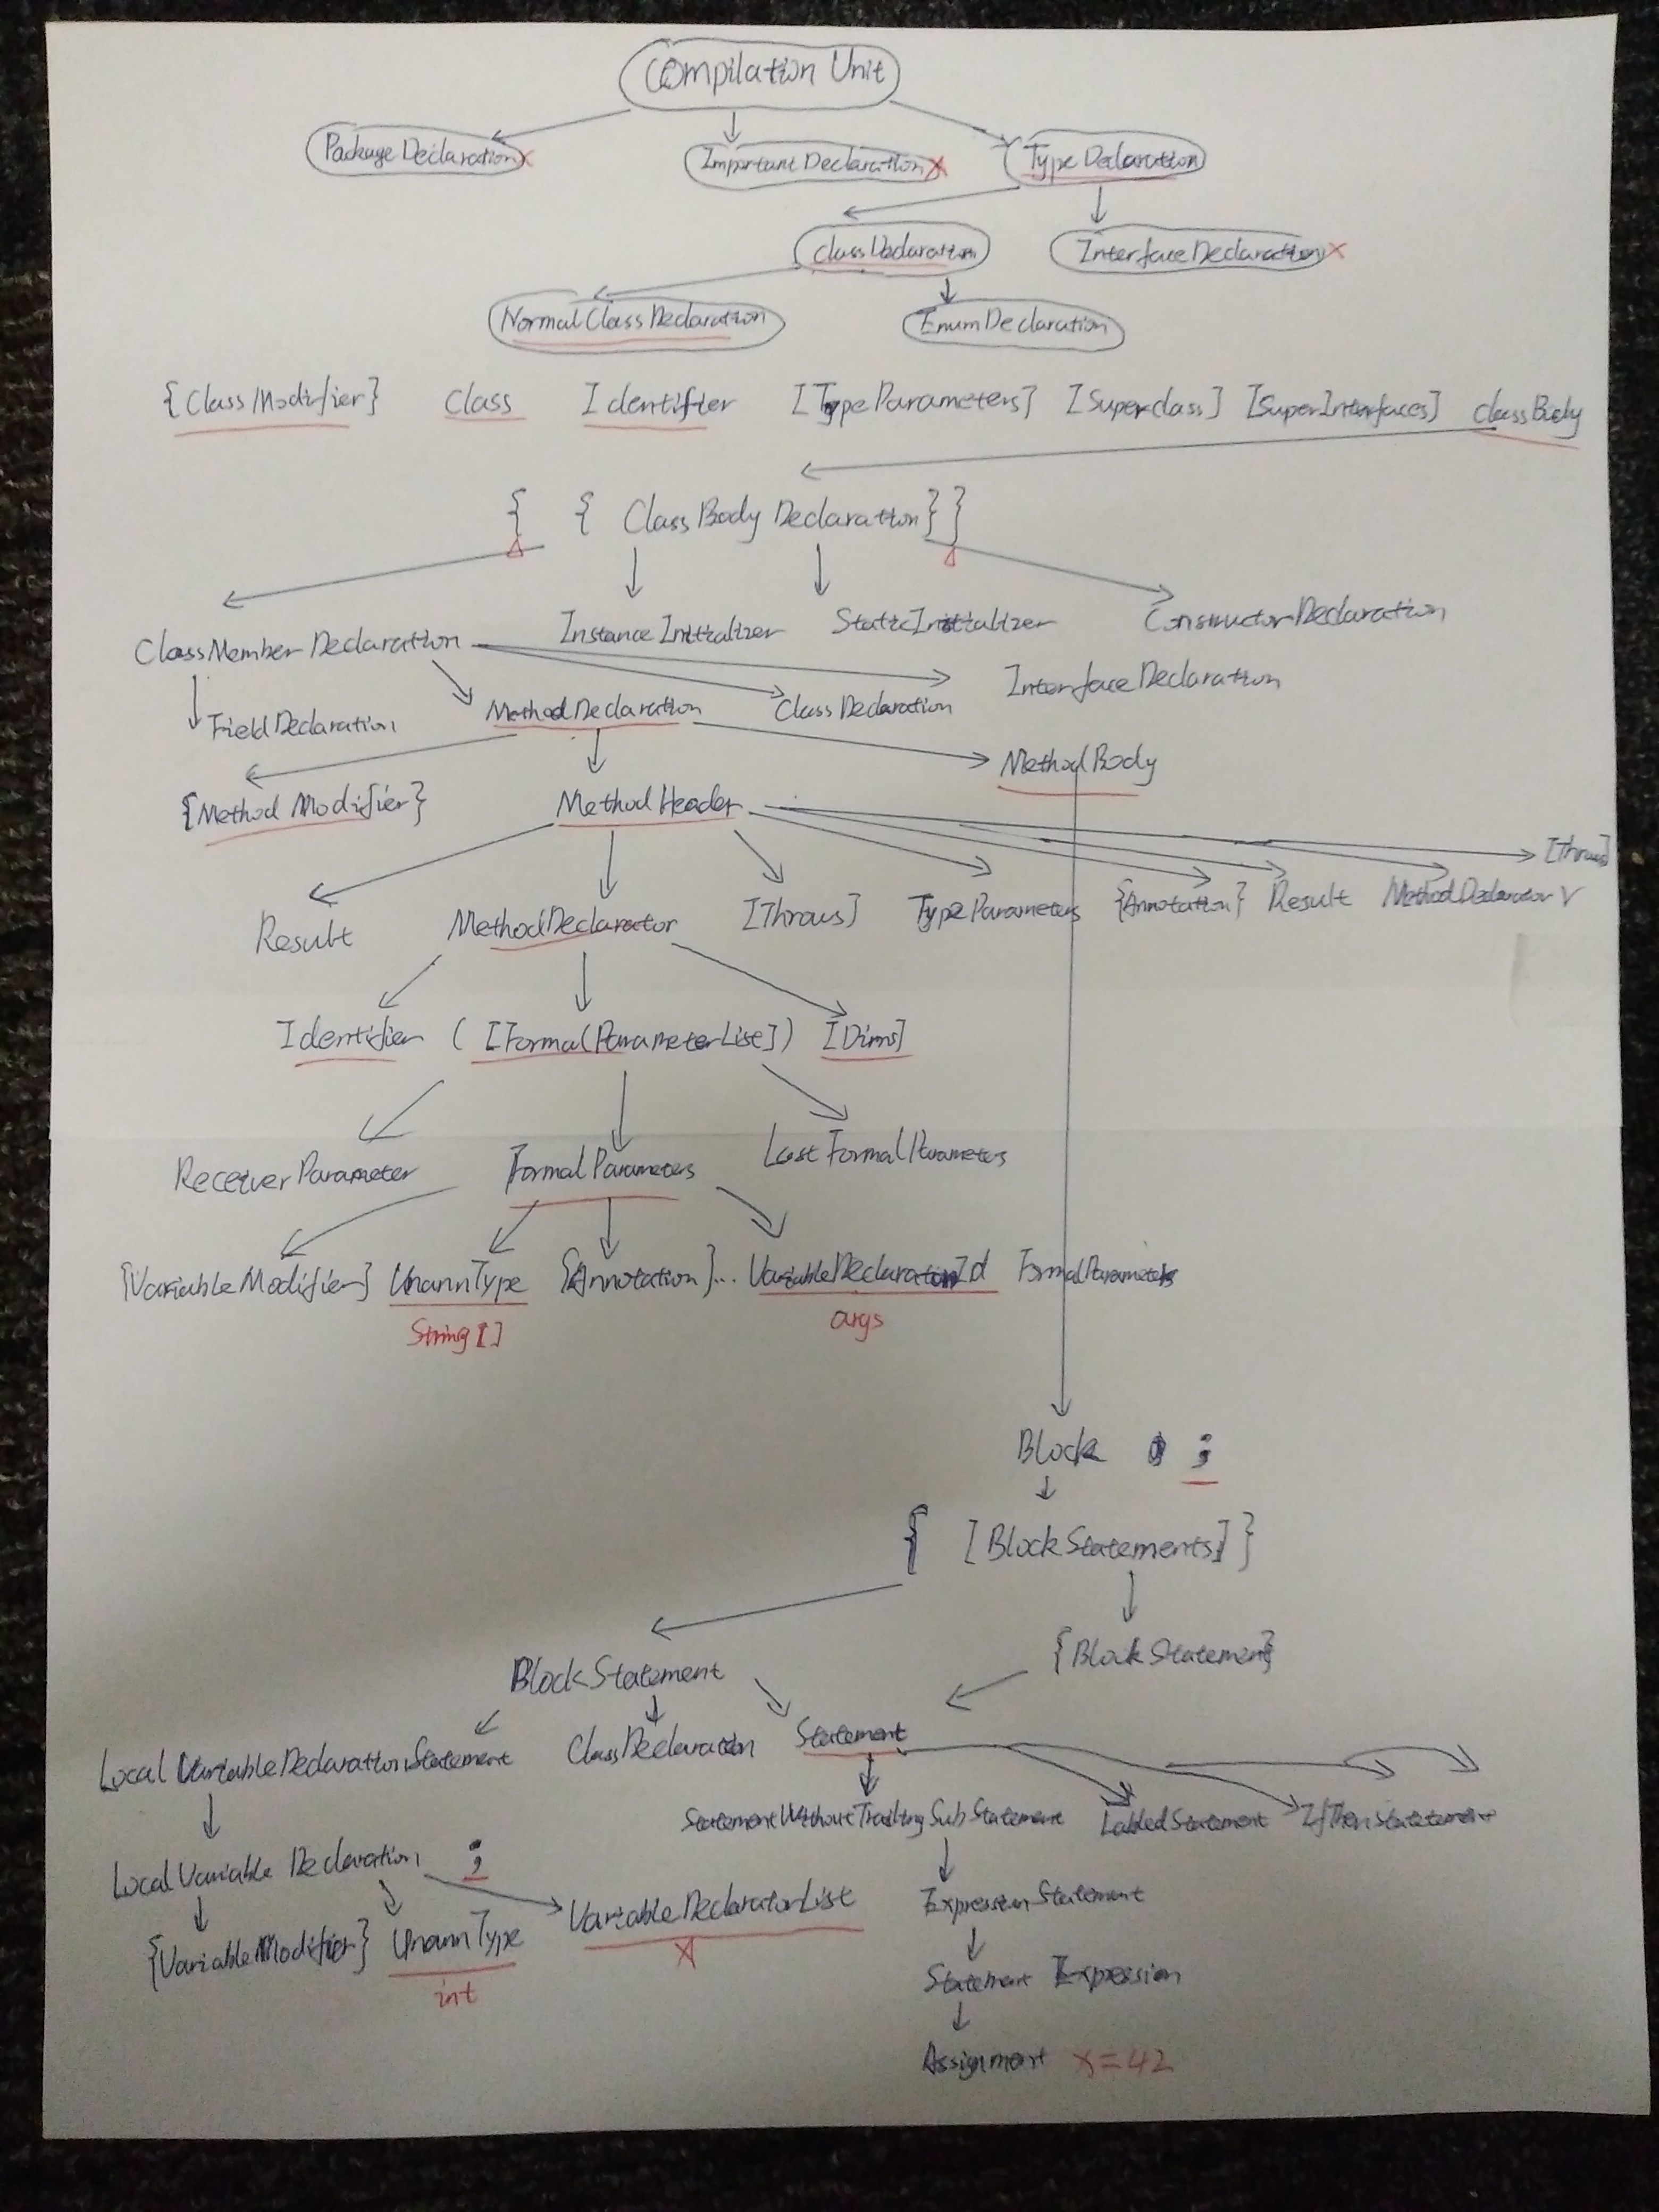 Compilation Unit
Package Declaration x Important Declaration x Type Declaration
Class Declaration Interface Declaration x
Normal Class Declaration Enum Declaration
{Class Modifier} Class Identifier [Type Parameters] [Superclass] [SuperInterfaces] classBody
{ { Class Body Declaration } }
ClassMember Declaration Instance Initializer Static Initializer Constructor Declaration
Field Declaration Method Declaration Class Declaration Interface Declaration
{Method Modifier} Method Header Method Body
Result MethodDeclarator [Throws] Type Parameters {Annotation} Result MethodDeclarator [Throws]
Identifier ( [Formal Parameter List] ) [Dims]
Receiver Parameter Formal Parameters Last Formal Parameters
{Variable Modifier} UnannType {Annotation}... Variable Declarator Id Formal Parameters
String [ ] args
Block ;
{ [Block Statements] }
Block Statement {Block Statement}
Local Variable Declaration Statement Class Declaration Statement
Statement Without Trailing Sub Statement Labled Statement If Then Statetement
Local Variable Declaration ;
{Variable Modifier} Unann Type Variable Declarator List Expression Statement
int X
Statement Expression
Assignment x=42